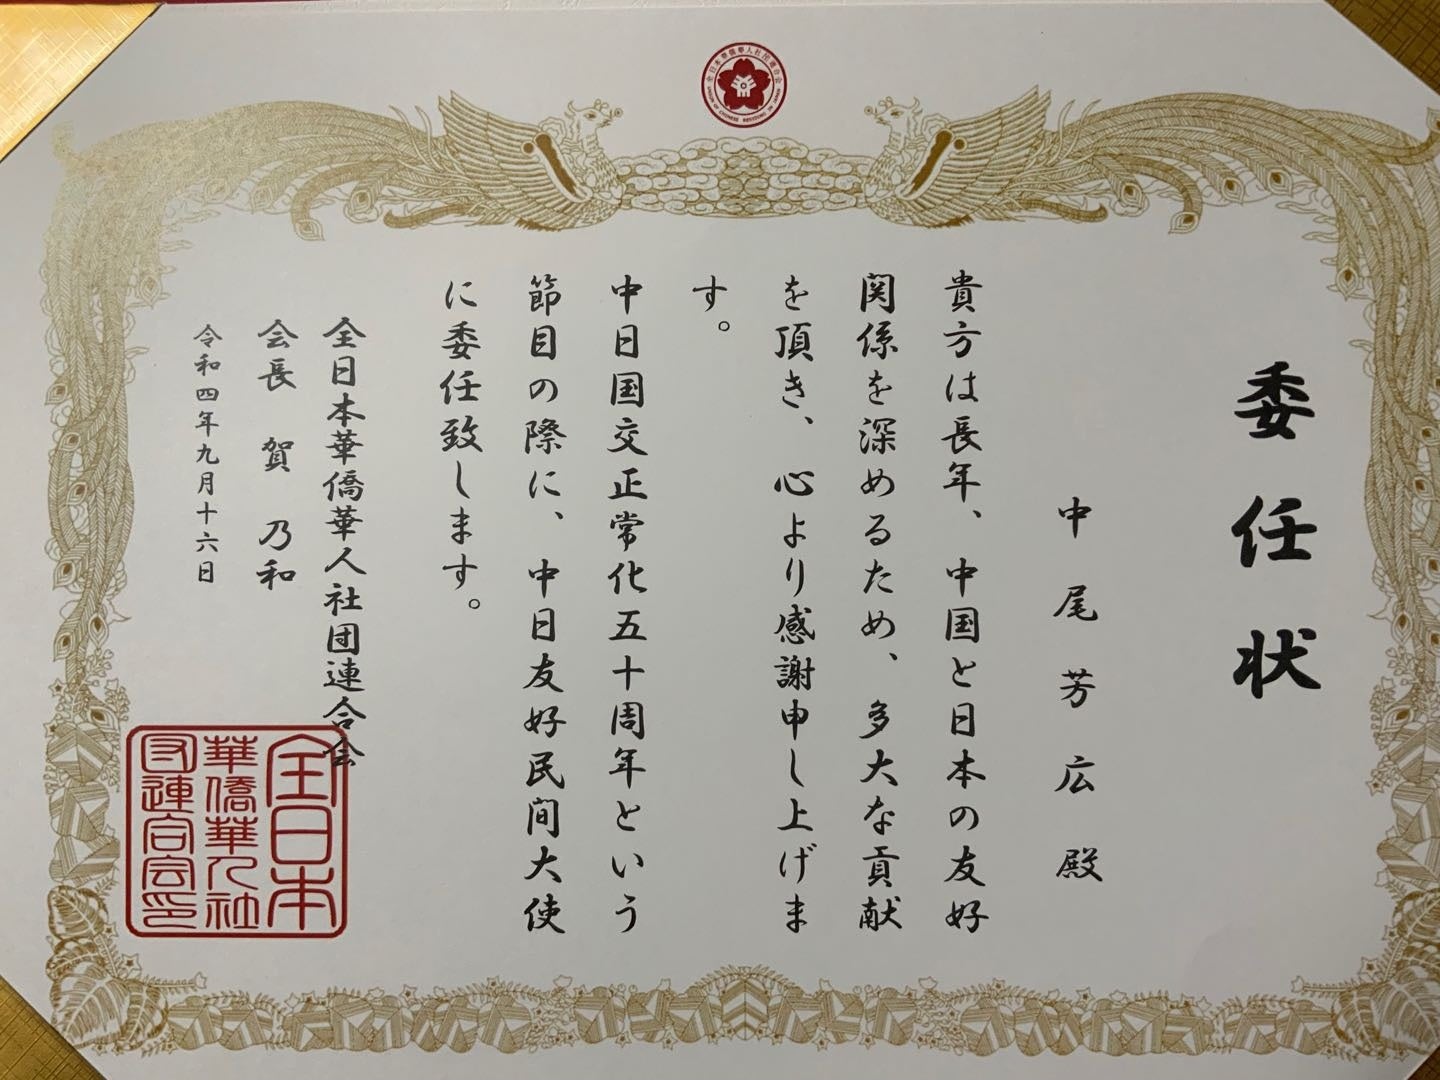 全日本華僑華人社団連合会
UNION OF CHINESE RESIDING IN JAPAN
委任状
中尾芳広殿
貴方は長年、中国と日本の友好
関係を深めるため、多大な貢献
を頂き、心より感謝申し上げま
す。
中日国交正常化五十周年という
節目の際に、中日友好民间大使
に委任致します。
全日本華僑華人社団連合会
会長 賀乃和
令和四年九月十六日
全日本
華僑華人社
団連合会印